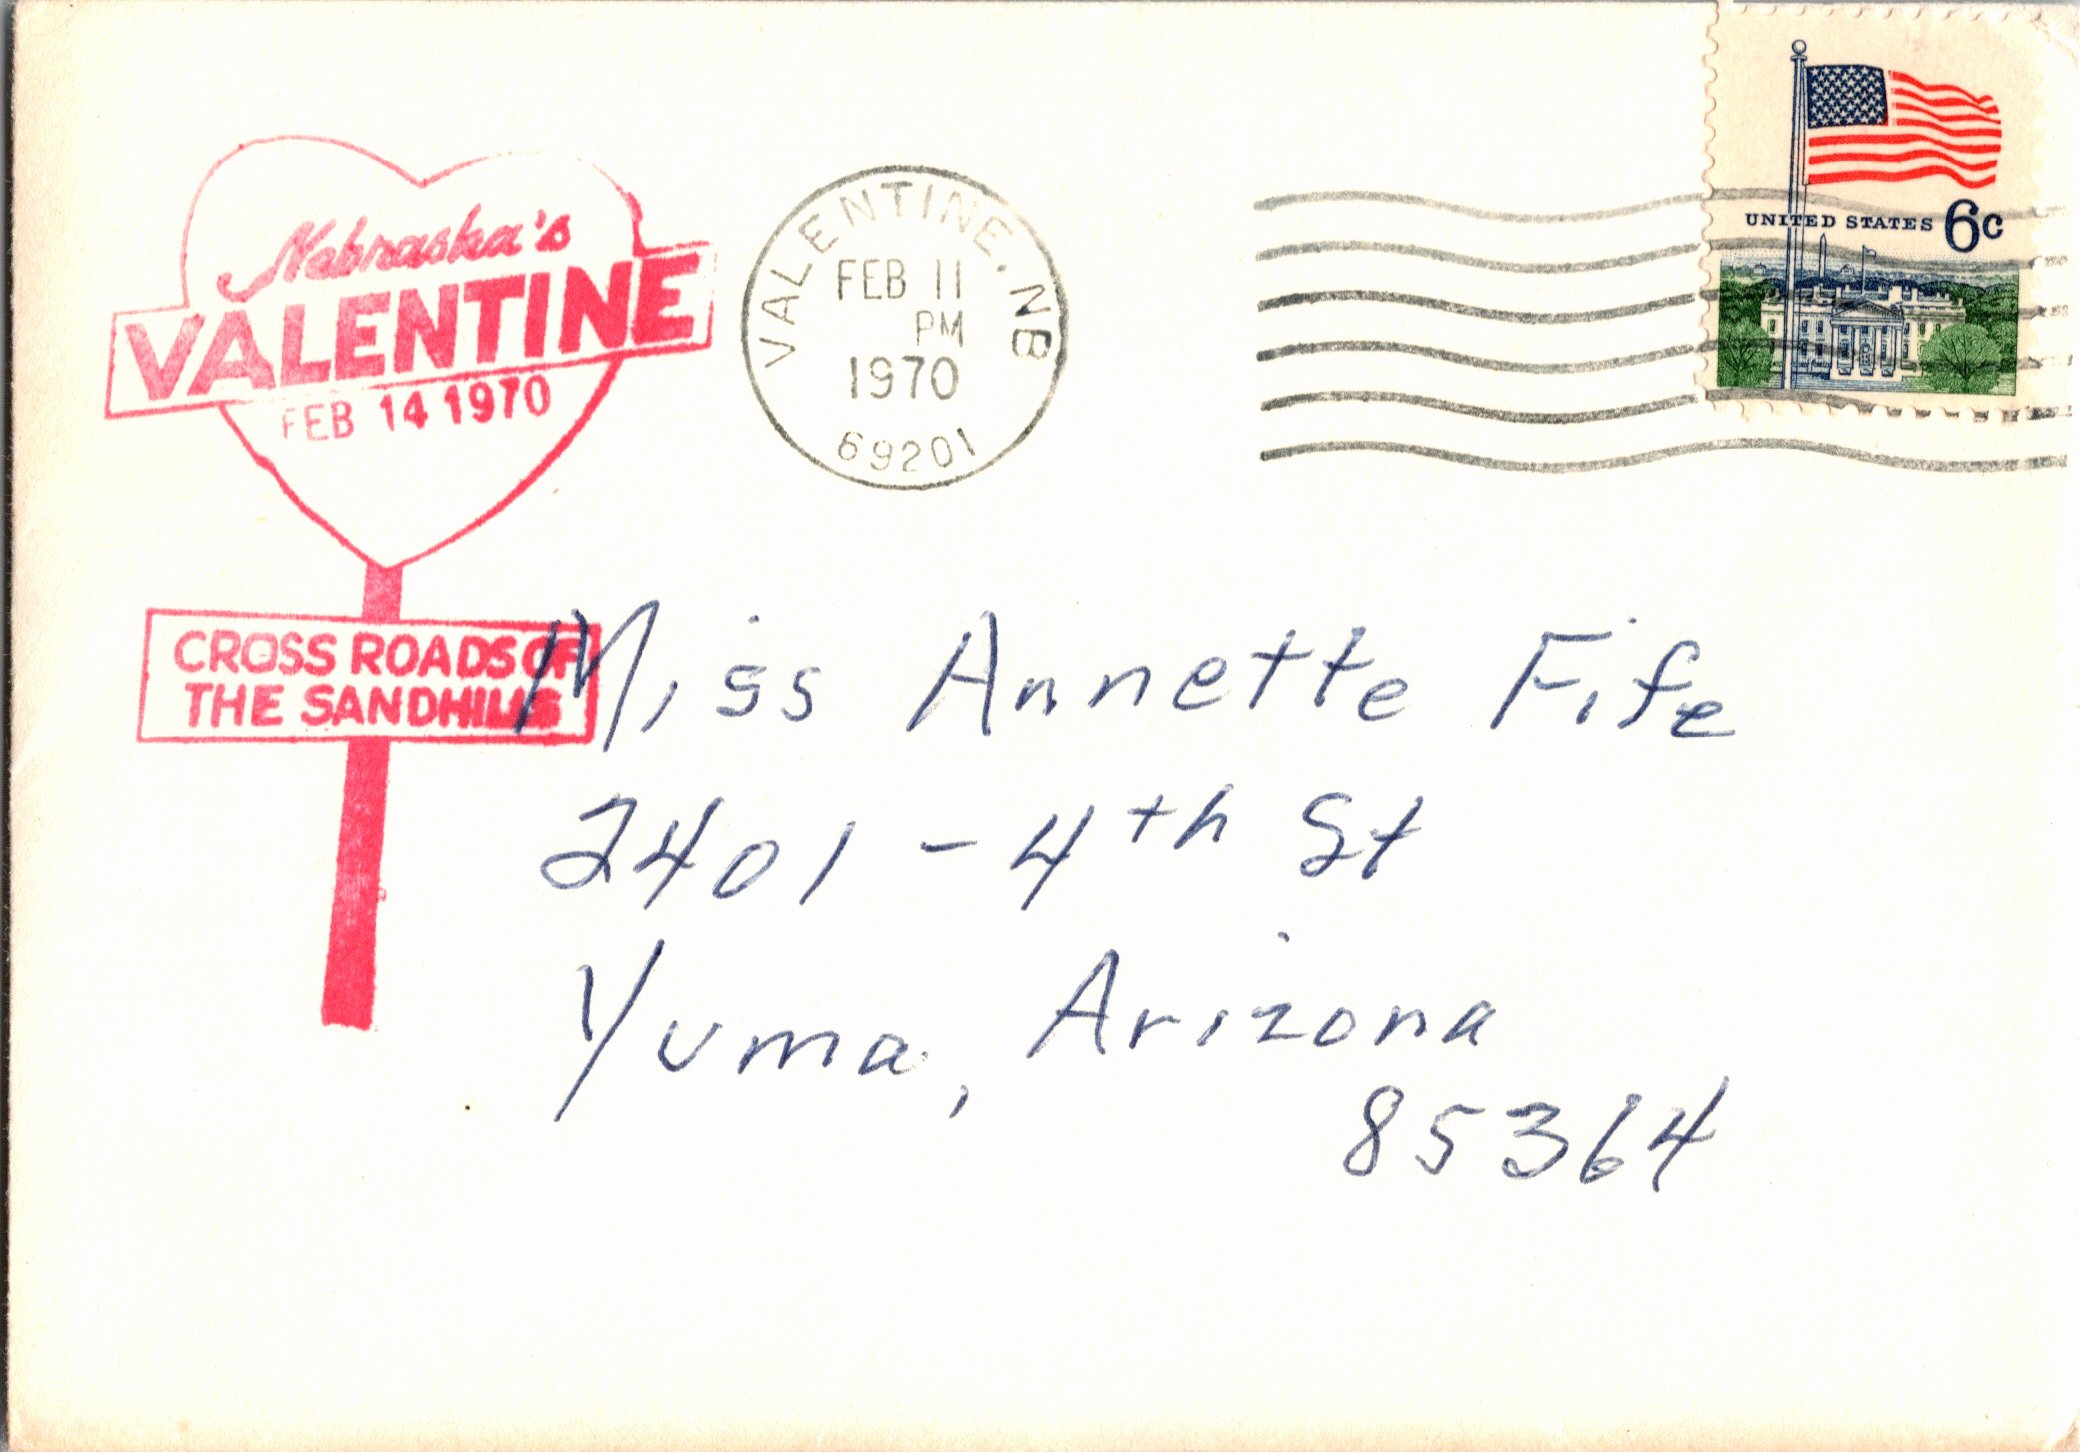 Nebraska's
VALENTINE
FEB 14 1970
CROSS ROADS OF
THE SANDHILLS
VALENTINE, NB
FEB 11
PM
1970
69201
UNITED STATES 6c
Miss Annette Fife
2401 - 4th St
Yuma, Arizona
85364